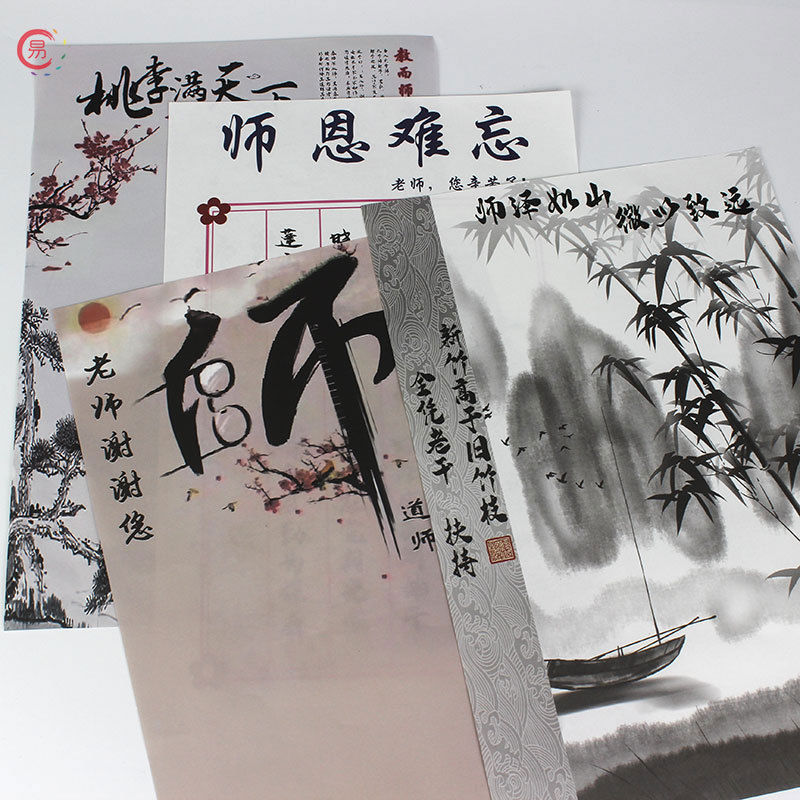 易
桃李满天下
教而师
师恩难忘
老师，您辛苦了！
莲
师
老师谢谢您
道师
师泽如山 微以致远
新竹高于旧竹枝
全凭老干 扶持